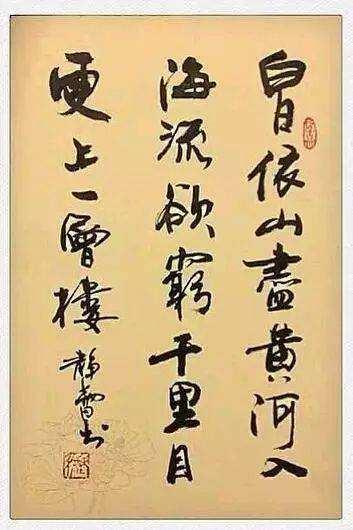 白日依山盡黄河入
海流欲窮千里目
更上一層樓
靜雪書